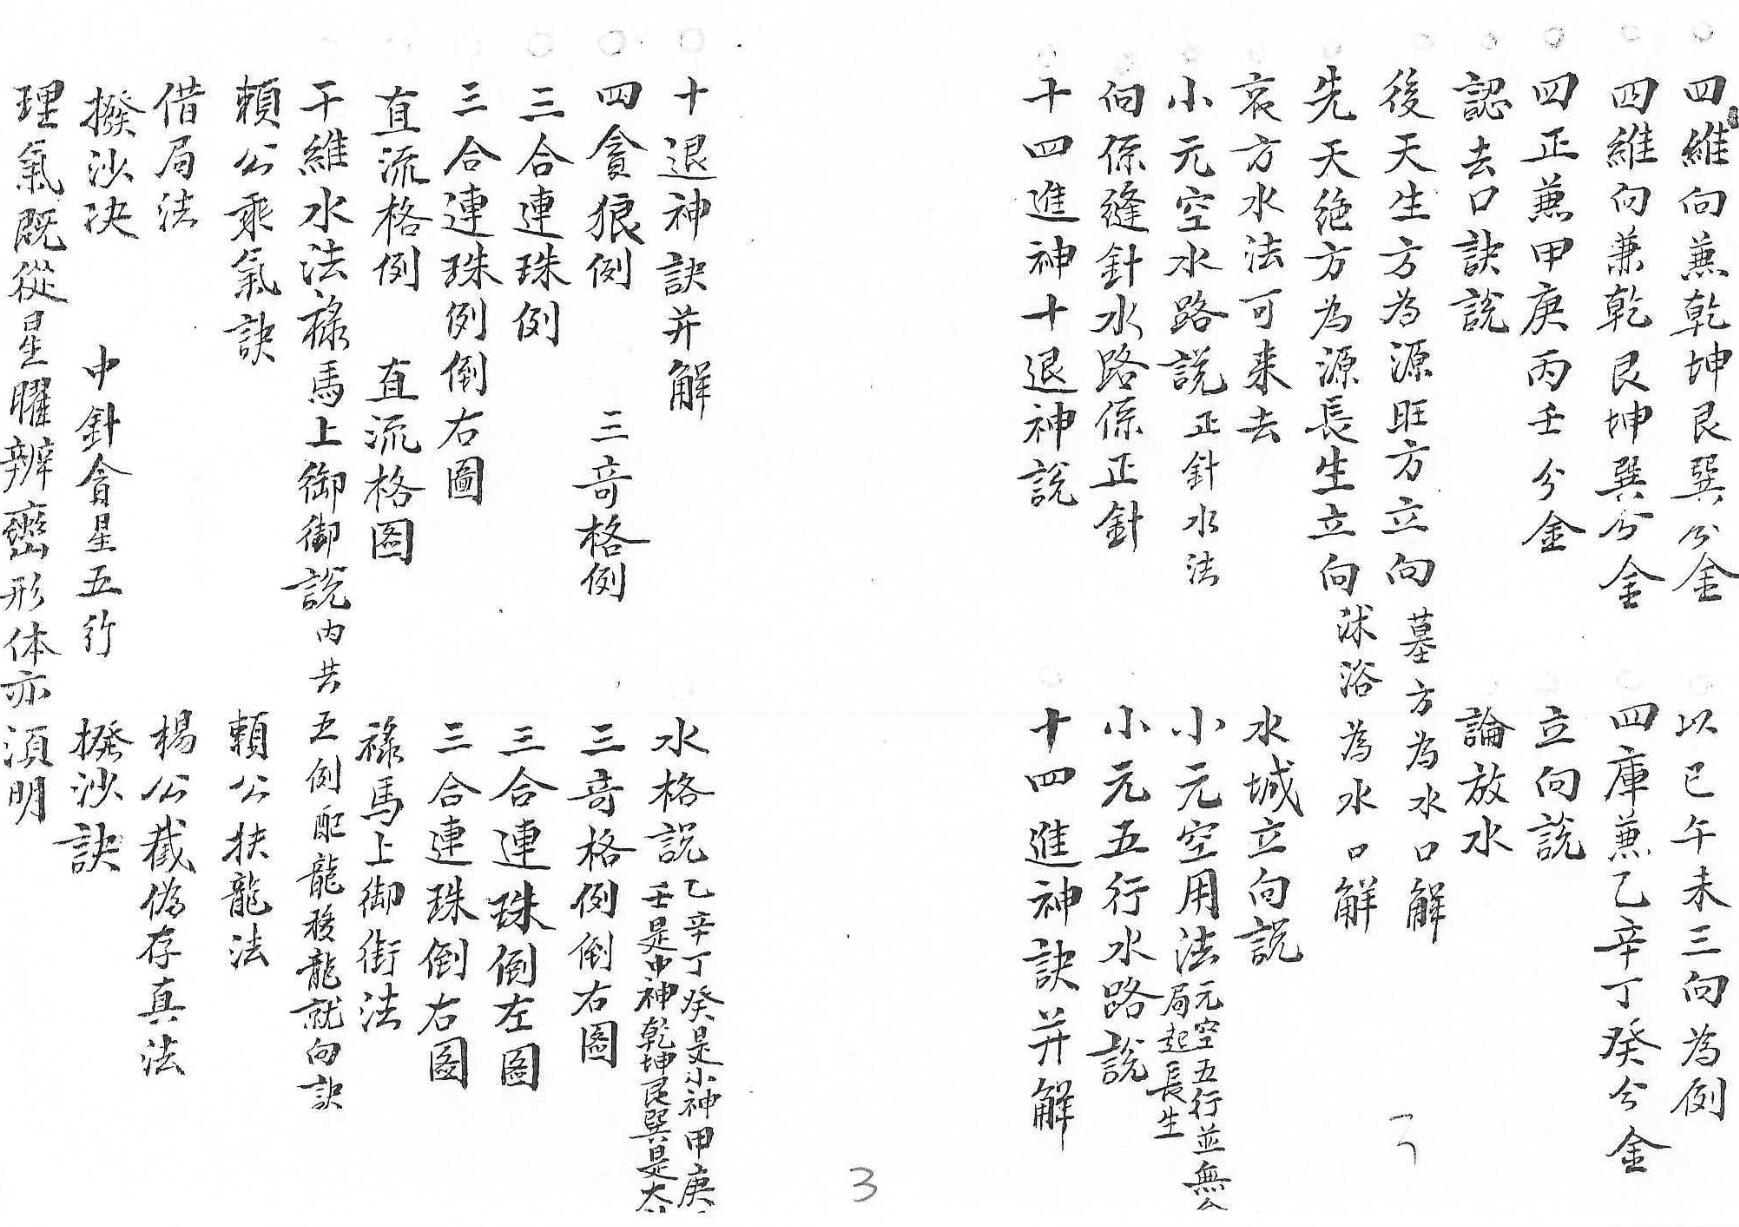 四維向兼乾坤艮巽分金
以巳午未三向為例
四維向兼乾艮坤巽分金
四庫兼乙辛丁癸分金
四正兼甲庚丙壬分金
立向說
認去口訣說
論放水
後天生方為源旺方立向墓方為水口解
先天絶方為源長生立向沐浴為水口解
哀方水法可来去
水城立向說
小元空水路説正針水法
小元空用法元空五行並無
局起長生
向係縫針水路係正針
小元五行水路說
十四進神十退神説
十四進神訣并解
3
十退神訣并解
水格説乙辛丁癸是小神甲庚
壬是中神乾坤艮巽是大
四貪狼例
三竒格例
三竒格例倒右圖
三合連珠例
三合連珠倒左圖
三合連珠例倒右圖
三合連珠倒右圖
直流格例
直流格图
禄馬上御街法
干維水法祿馬上御御説内共五例配龍移龍就向訣
賴公乘氣訣
賴公扶龍法
借局法
楊公截偽存真法
撥沙决
中針貪星五行
撥沙訣
理氣既從星曜辨巒形体亦須明